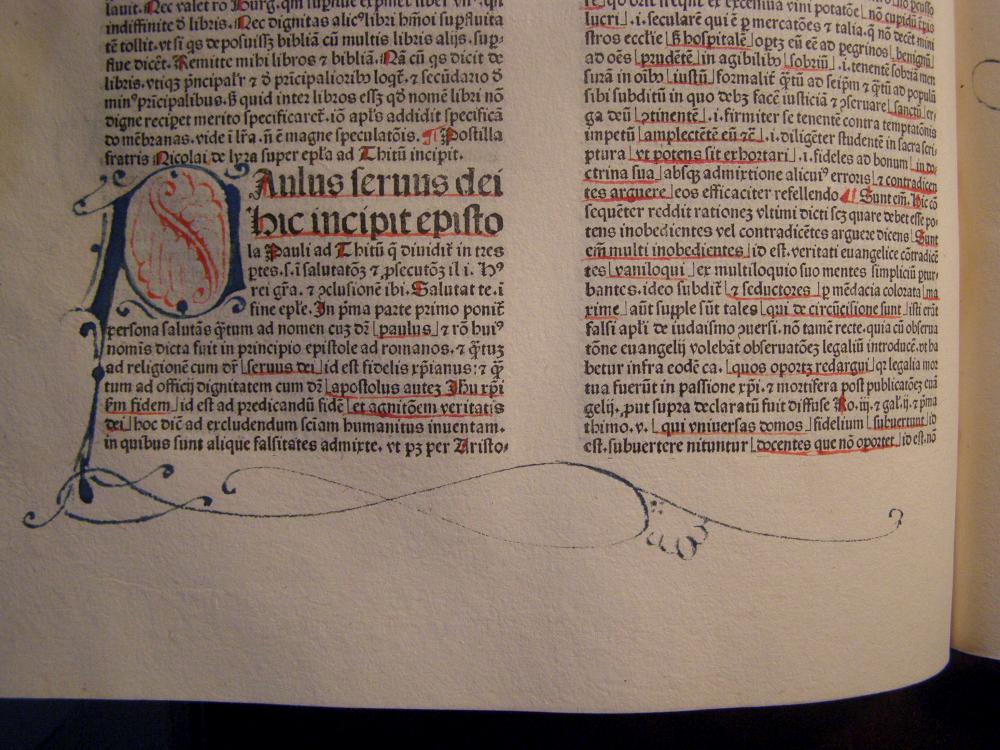 lauit. Nec valet ro Burg. qm supflue exp̄met liber vii. qui
indiffinite ꝺ libris. Nec dignitas alicꝰ libri hm̄oi supfluita
tē tollit. vt si qs deposuissꝫ bibliā cū multis alijs. sup-
flue dicēt. Remitte mihi libros ⁊ bibliā. Nā cū qs dicit de
libris. vtiqꝫ p̄ncipalr̄ ⁊ ꝺ p̄ricipalioribꝰ logr̄. ⁊ secūdario ꝺ
minꝰ p̄ricipalibus. ß quid inter libros essꝫ qꝺ nomē libri nō
digne recipet merito specificaret. iō apl̄s addidit specificā
do mēbranas. vide i lr̄a. n̄ ē magne speculatōis. ¶ Postilla
fratris Nicolai de lyra super epl̄a ad Thitū incipit.
PAulus seruus dei
hic incipit episto
la Pauli ad Thitū q̄ diuidit̄ in tres
ptes. s. i salutatōꝫ ⁊ ꝓsecutōꝫ il i. Hꝰ
rei gr̄a. ⁊ ꝯclusionē ibi. Salutat te. i
fine epl̄e. In p̄ma parte primo ponit̄
persona salutās q̄tum ad nomen cuꝫ dꝛ̄ paulus ⁊ rō huiꝰ
nomīs dicta fuit in principio epistole ad romanos. ⁊ q̄tuꝫ
ad religionē cum dr̄ seruus dei id est fidelis xp̄ianus: ⁊ q̄
tum ad officij dignitatem cum dr̄ apostolus auteꝫ Ihu xp̄i
ßm fidem id est ad predicandū fidē et agnitōem veritatis
dei hoc dic̄ ad excludendum sciam humanitus inuentam.
in quibus sunt alique falsitates admixte. vt pꝫ per Aristo-
lucri .i. seculare qui ē p̄ mercatōes ⁊ talia. q̄ nō decēt mini
stros ecclie ß hospitalē optꝫ cū eē ad pegrinos benignū
ad oēs prudētē in agibilibꝰ sobriū .i. tenentē sobriā men
surā in oībꝰ iustū formalit̄ q̄tū ad seip̄m ⁊ q̄tū ad populū
sibi subditū in quo debꝫ facē iusticiā ⁊ ꝓseruare sanctū er/
ga deū ꝯtinentē .i. firmiter se tenentē contra temptatōnis
impetū amplectētē eū ⁊c̄ .i. diligēter studentē in sacra scri-
ptura vt potens sit exhortari .i. fideles ad bonum in do
ctrina sua absqꝫ admixtione alicuiꝰ erroris ⁊ contradicen
tes arguere eos efficaciter refellendo ¶ Sunt em̄. Hic cō
sequēter reddit rationeꝫ vltimi dicti scꝫ quare debet esse po-
tens inobedientes vel contradicētes arguere dicens Sunt
em̄ multi inobedientes id est. veritati euangelice cōtradicē
tes vaniloqui ex multiloquio suo mentes simplicium ptur-
bantes. ideo subdit̄ ⁊ seductores p mēdacia colorata ma
xime aūt supple sūt tales qui de circūcisione sunt isti erāt
falsi apl̄i de iudaismo ꝯuersi. nō tamē recte. quia cū obserua
tōne euangelij volebāt obseruatōeꝫ legaliū introducē. vt ha
betur infra codē ca. quos oportꝫ redargui qꝛ legalia mor
tua fuerūt in passione xp̄i. ⁊ mortifera post publicatōeꝫ euā
gelij. put supra declaratū fuit diffuse Ro. iij. ⁊ gal. ij. ⁊ p̄ma
thimo. v. qui vniuersas domos fidelium subuertunt id
est. subuertere nituntur docentes que nō oportet id est. nō